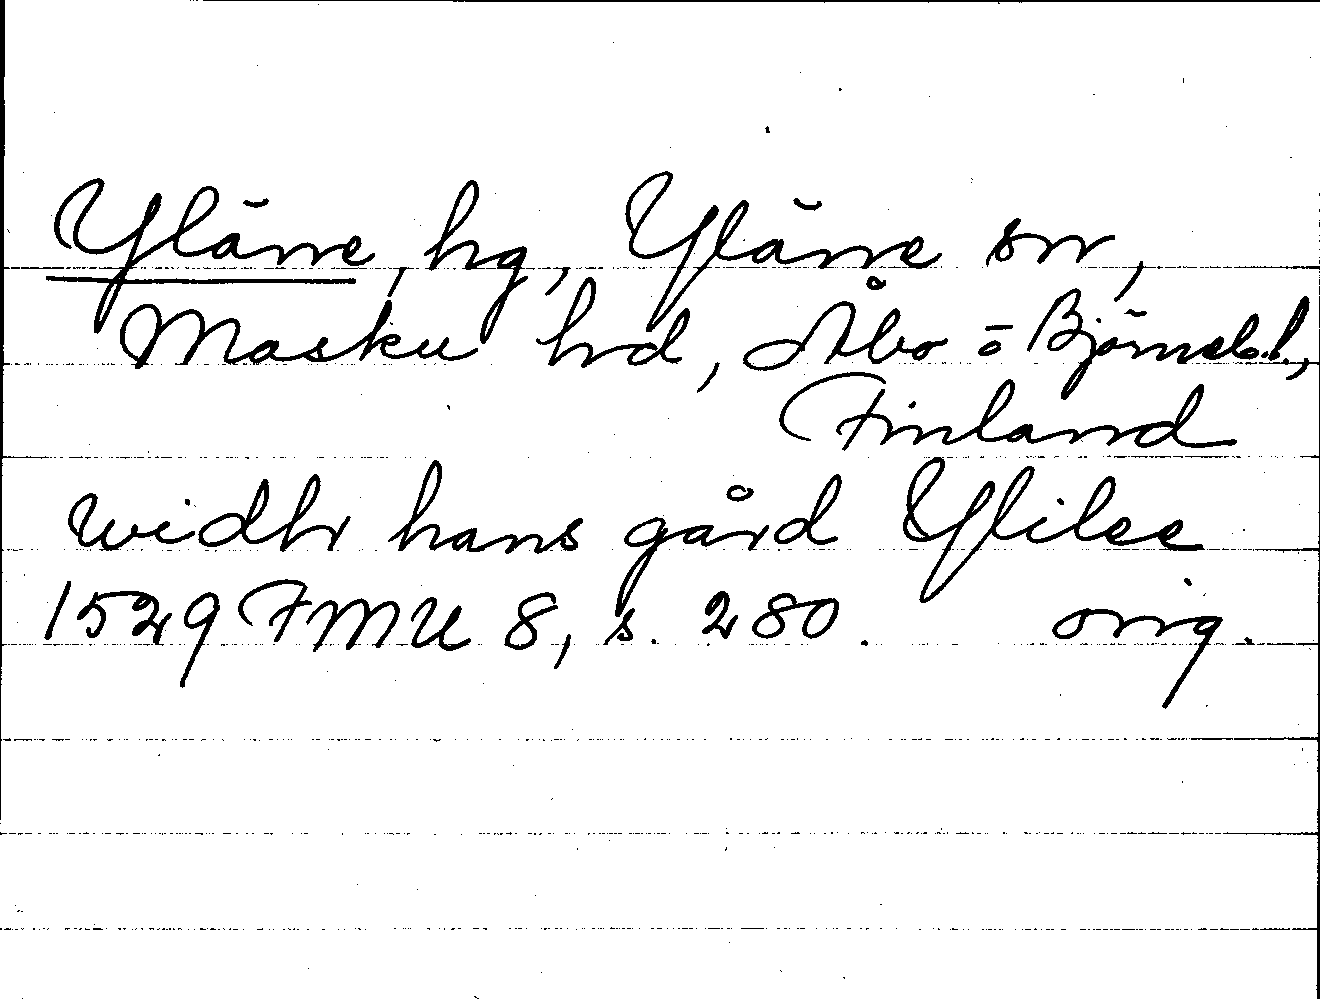 Yläne, hg, Yläne sn,
Masku hd, Åbo o Björneb.l.,
Finland
widhr hans gård Ylilee
1529 FMU 8, s. 280. orig.